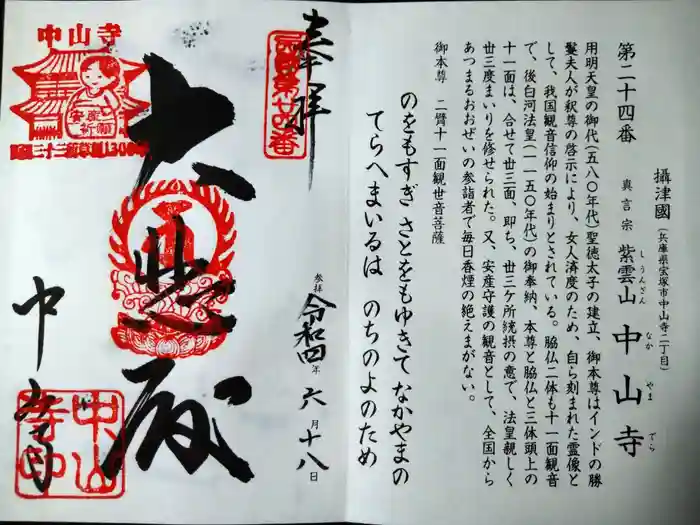 第二十四番
攝津國(兵庫県宝塚市中山寺二丁目)
真言宗 紫雲山 中山寺
しうんざん なかやまでら
用明天皇の御代(五八〇年代)聖徳太子の建立、御本尊はインドの勝
鬘夫人が釈尊の啓示により、女人済度のため、自ら刻まれた霊像と
して、我国観音信仰の始まりとされている。脇仏二体も十一面観音
で、後白河法皇(一一五〇年代)の御奉納、本尊と脇仏と三体頭上の
十一面は、合せて丗三面、即ち、丗三ケ所統摂の意で、法皇親しく
丗三度まいりを修せられた。又、安産守護の観音として、全国から
あつまるおおぜいの参詣者で毎日香煙の絶えまがない。
御本尊 二臂十一面観世音菩薩
のをもすぎ さとをもゆきて なかやまの
てらへまいるは のちのよのため
奉拝
参拝 令和四年六月十八日
大悲殿
中山寺
中山寺
安産祈願
中山寺印